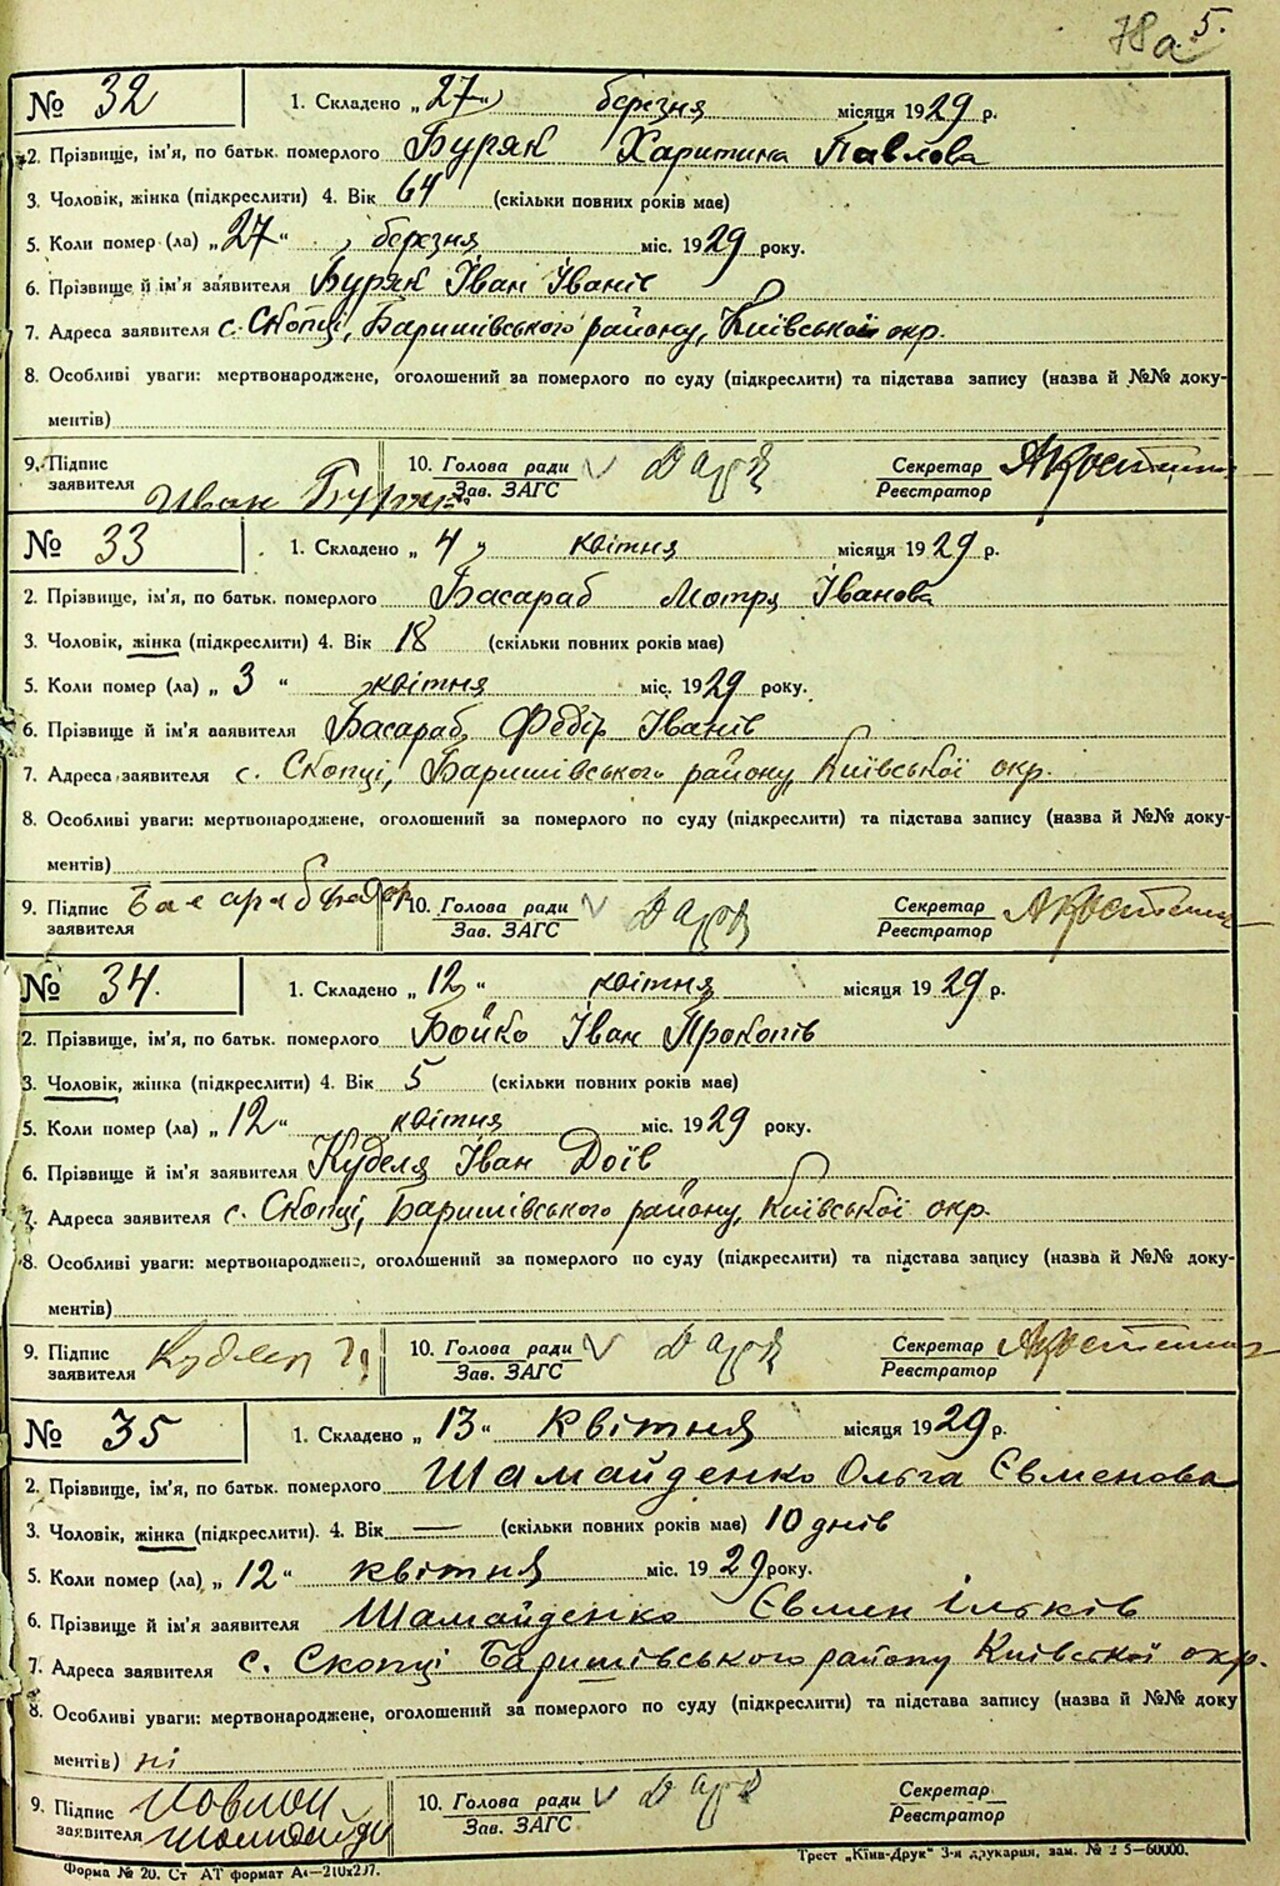 78а 5.
№ 32 1. Складено „27“ березня місяця 1929 р.
2. Прізвище, ім'я, по батьк. померлого Буряк Харитина Павлова
3. Чоловік, жінка (підкреслити) 4. Вік 64 (скільки повних років має)
5. Коли помер (ла) „27“ березня міс. 1929 року.
6. Прізвище й ім'я заявителя Буряк Іван Іванів
7. Адреса заявителя с. Скопці, Баришівського району, Київської окр.
8. Особливі уваги: мертвонароджене, оголошений за померлого по суду (підкреслити) та підстава запису (назва й №№ доку-
ментів)
9. Підпис 10. Голова ради Секретар
заявителя Иван Зав. ЗАГС Реєстратор
№ 33 1. Складено „4“ квітня місяця 1929 р.
2. Прізвище, ім'я, по батьк. померлого Басараб Мотря Іванова
3. Чоловік, жінка (підкреслити) 4. Вік 18 (скільки повних років має)
5. Коли помер (ла) „3“ квітня міс. 1929 року.
6. Прізвище й ім'я заявителя Басараб Федір Іванів
7. Адреса заявителя с. Скопці, Баришівського району, Київської окр.
8. Особливі уваги: мертвонароджене, оголошений за померлого по суду (підкреслити) та підстава запису (назва й №№ доку-
ментів)
9. Підпис Басараб 10. Голова ради Секретар
заявителя Зав. ЗАГС Реєстратор
№ 34. 1. Складено „12“ квітня місяця 1929 р.
2. Прізвище, ім'я, по батьк. померлого Бойко Іван Прокопів
3. Чоловік, жінка (підкреслити) 4. Вік 5 (скільки повних років має)
5. Коли помер (ла) „12“ квітня міс. 1929 року.
6. Прізвище й ім'я заявителя Куделя Іван Доїв
7. Адреса заявителя с. Скопці, Баришівського району, Київської окр.
8. Особливі уваги: мертвонароджене, оголошений за померлого по суду (підкреслити) та підстава запису (назва й №№ доку-
ментів)
9. Підпис 10. Голова ради Секретар
заявителя Зав. ЗАГС Реєстратор
№ 35 1. Складено „13“ квітня місяця 1929 р.
2. Прізвище, ім'я, по батьк. померлого Шамайденко Ольга Євменова
3. Чоловік, жінка (підкреслити). 4. Вік — (скільки повних років має) 10 днів
5. Коли помер (ла) „12“ квітня міс. 1929 року.
6. Прізвище й ім'я заявителя Шамайденко Євмен Ільків
7. Адреса заявителя с. Скопці Баришівського району Київської окр.
8. Особливі уваги: мертвонароджене, оголошений за померлого по суду (підкреслити) та підстава запису (назва й №№ доку
ментів) ні
9. Підпис 10. Голова ради Секретар
заявителя Зав. ЗАГС Реєстратор
Форма № 20. Ст АТ формат А4—210х297. Трест „Київ-Друк“ 3-я друкарня, зам. № 5—60000.